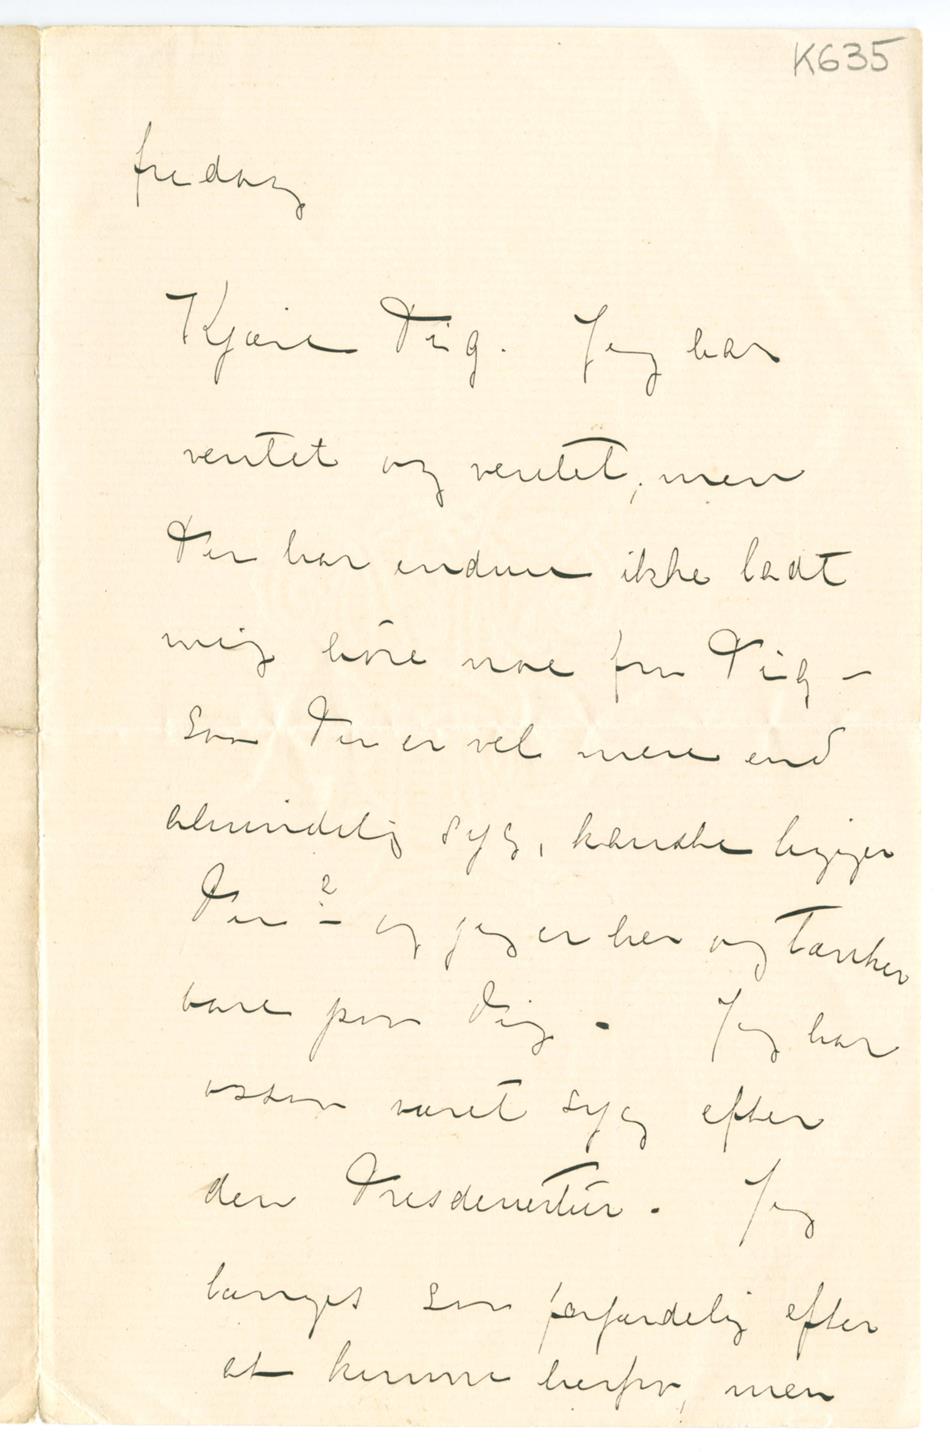 K635
fredag
Kjære Dig. Jeg har
ventet og ventet, men
Du har endnu ikke ladt
mig høre noe fra Dig –
saa Du er vel mere end
almindelig syg, kanske ligger
Du? – og jeg er her og tænker
bare paa Dig. Jeg har
ossaa været syg efter
den Dresdenertur. Jeg
længes saa forfærdelig efter
at komme herfra, men